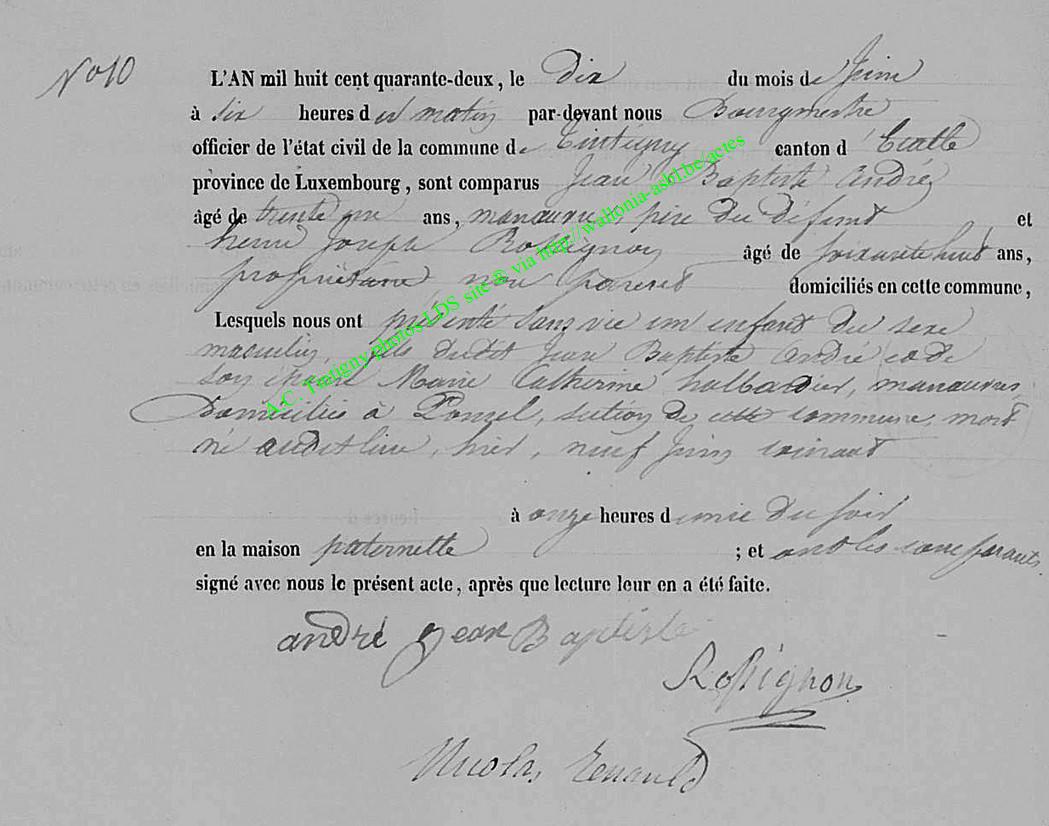 No 10
L'AN mil huit cent quarante-deux, le dix du mois de Juin
à six heures du matin par-devant nous Bourgmestre
officier de l'état civil de la commune de Tintigny canton d' Etalle
province de Luxembourg, sont comparus Jean Baptiste André,
âgé de trente un ans, manœuvre, père du défunt et
henri Joseph Rossignon âgé de soixante huit ans,
propriétaire, non parent domiciliés en cette commune,
Lesquels nous ont présenté sans vie un enfant du sexe
masculin, fils dudit Jean Baptiste André et de
son épouse Marie Catherine halbardier, manœuvres
Domiciliés à Ponsel, section de cette commune, mort
né audit lieu, hier, neuf Juin courant
à onze heures demie du soir
en la maison paternelle ; et ont les comparants
signé avec nous le présent acte, après que lecture leur en a été faite.
andré Jean Baptiste
Rossignon
Nicolas Renauld
A.C. Tintigny photos LDS site © via http://wallonia-asbl.be/actes